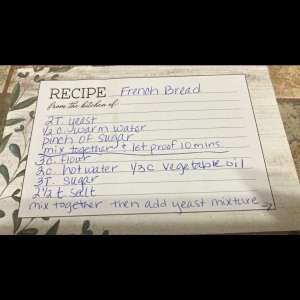 RECIPE French Bread
from the kitchen of:
2T yeast
1/2 c. warm water
pinch of sugar
mix together & let proof 10 mins
3c. flour
2c. hot water 1/3c vegetable oil
3T. sugar
2 1/2 t salt
mix together then add yeast mixture →